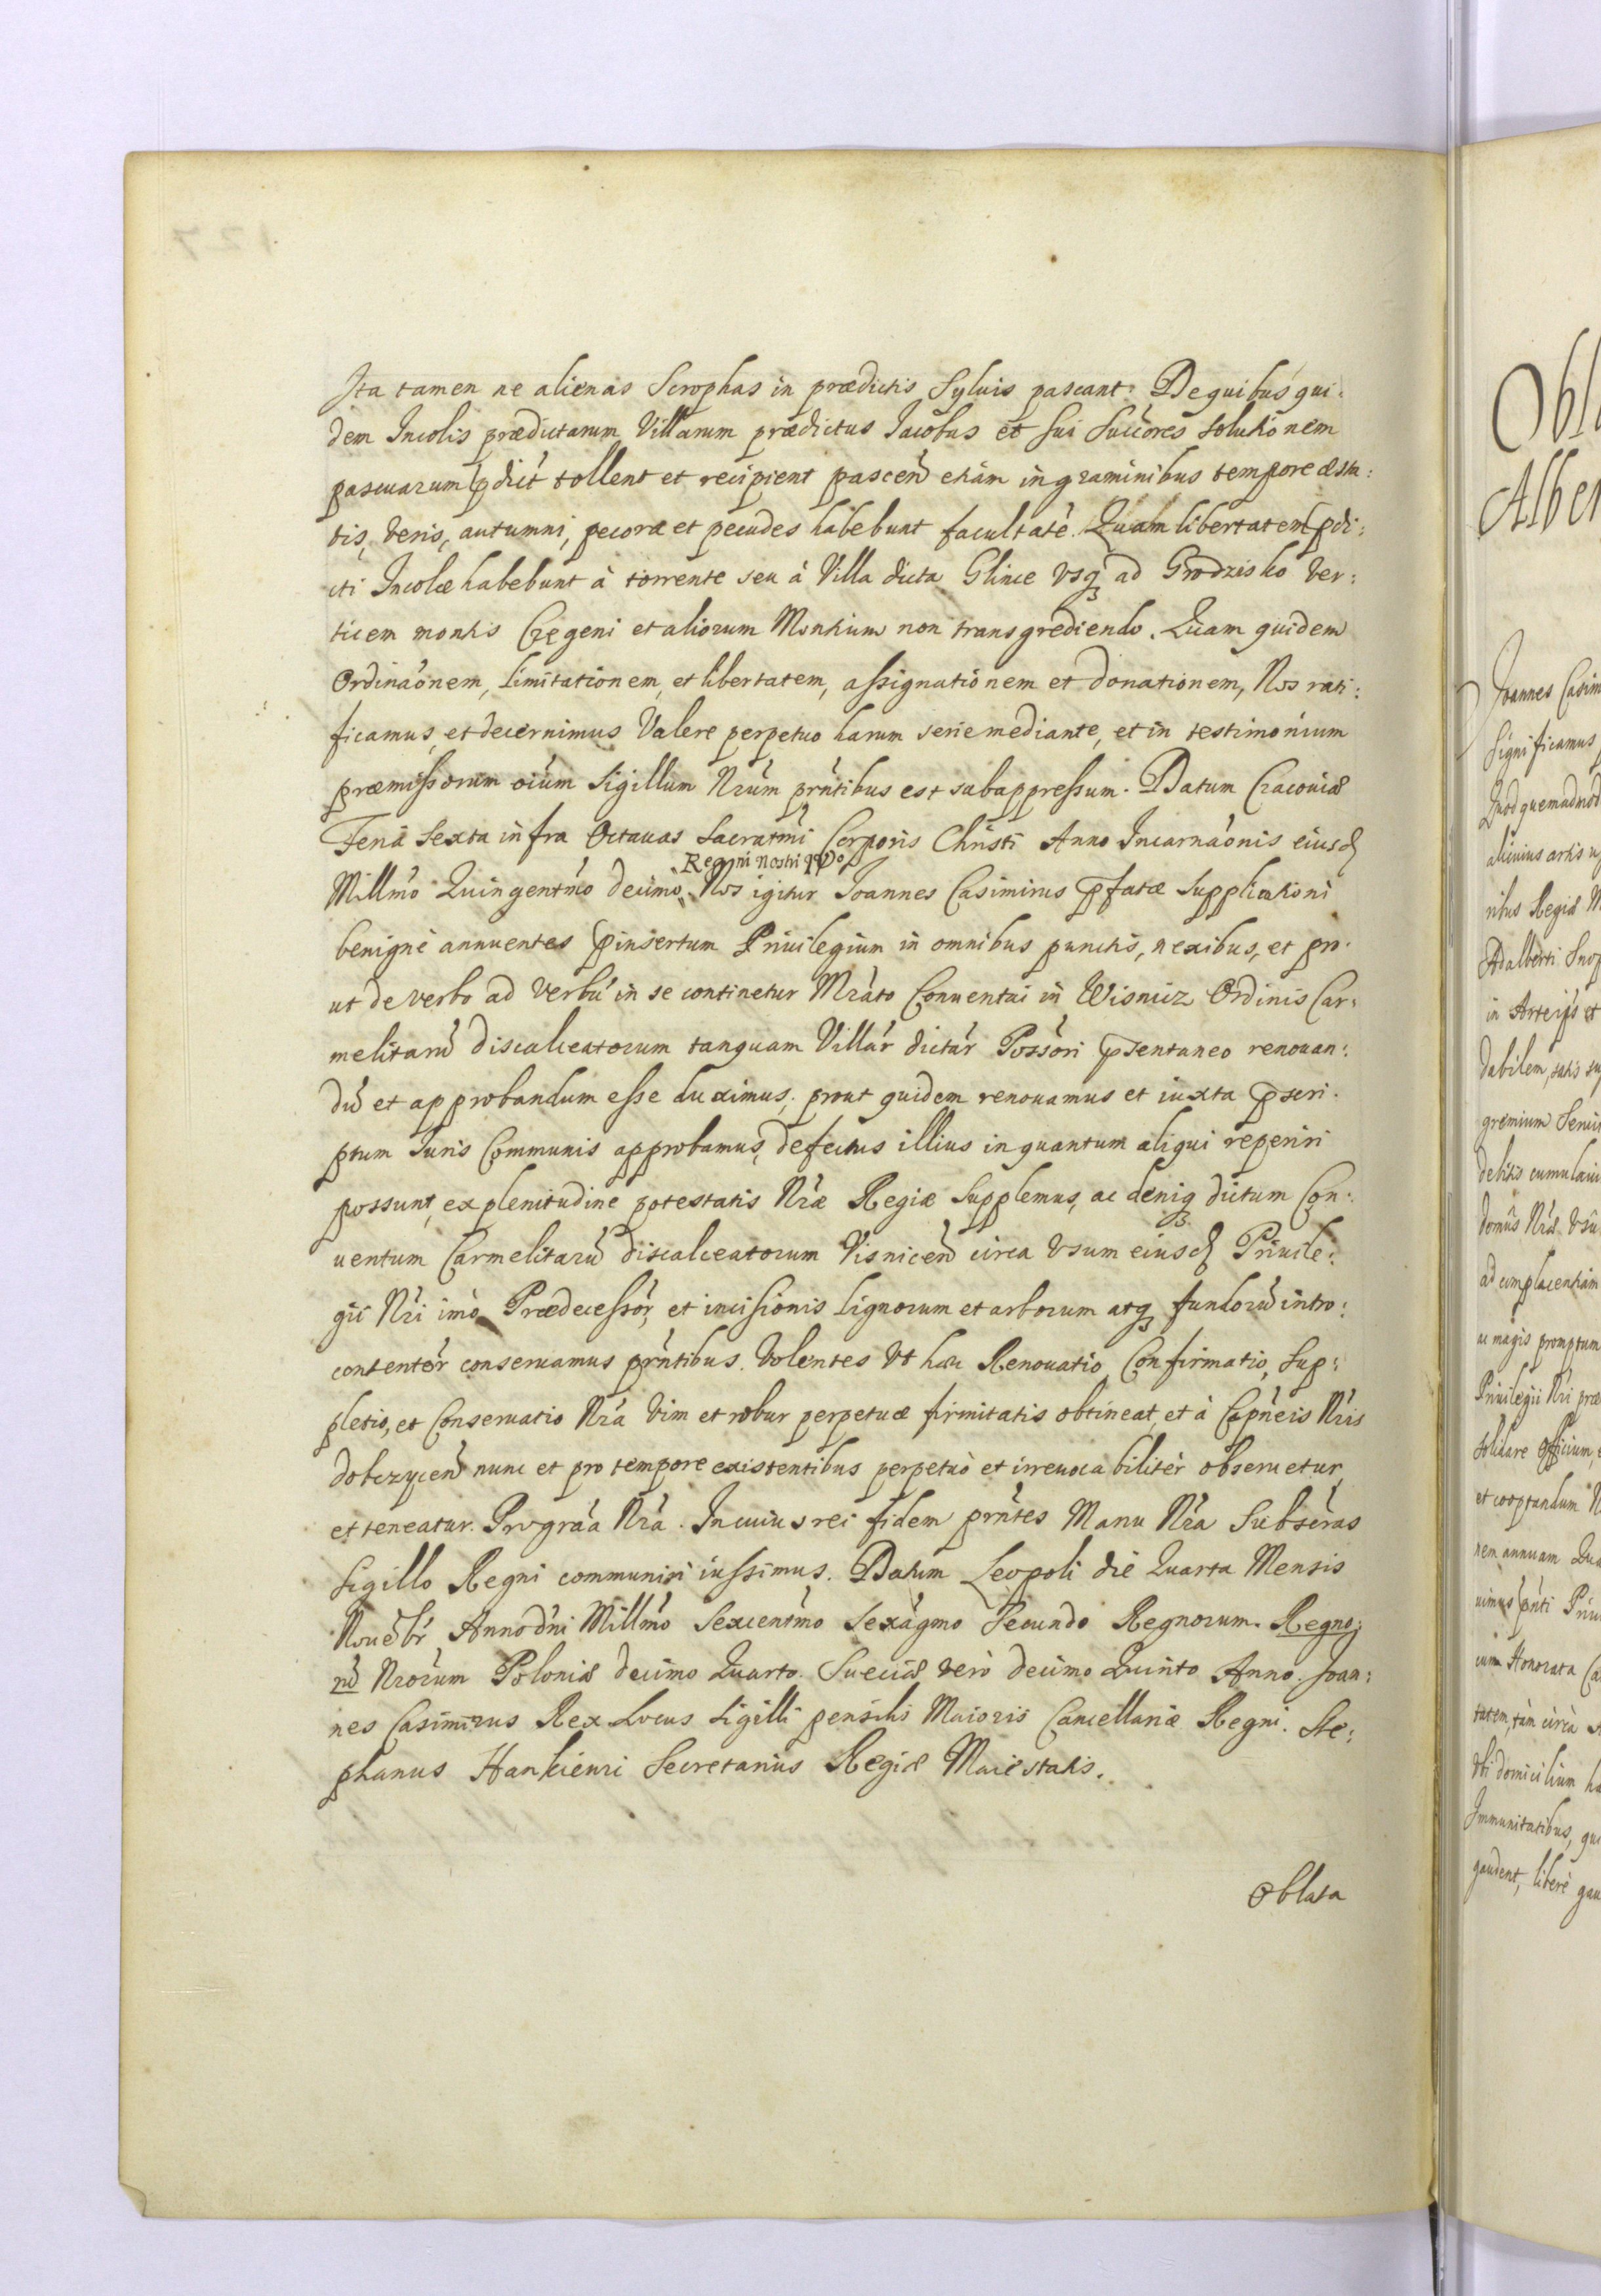 Ita tamen ne alienas Scrophas in prædictis Syluis pascant. De quibus qui:
dem Incolis prædictarum Villarum prædictus Jacobus et sui Succ̃ores solutionem
pascuarum p̱dict̃ tollent et recipient pascen̄ etiam in graminibus tempore æsta:
tis, veris, autumni, pecora et pecudes habebunt facultatẽ. Quam libertatem p̱di:
cti Incolæ habebunt à torrente seu à Villa dicta Glince vsq3 ad Grodzisko ver:
ticem montis Czegeni et aliorum Montium non transgrediendo. Quam quidem
Ordinãonem, limitationem, et libertatem, assignationem et donationem, Nos rati:
ficamus, et decernimus Valere perpetuo harum serie mediante, et in testimonium
præmissorum oĩum Sigillum Nr̃um prñtibus est subappressum. Datum Cracouiæ
Feria Sexta infra Octauas Sacratm̃i Corporis Christi Anno Incarnãonis eiusd̃
Regni nostri IVo
Millm̃o Quingentm̃o decimo. Nos igitur Joannes Casimirus p̱fatæ Supplicationi
benignè annuentes p̱insertum Priuilegium in omnibus punctis, nexibus, et pro:
ut de verbo ad verbũ in se continetur Mr̃ato Conuentui in Wisnicz Ordinis Car:
melitarũ discalceatorum tanquam Villar̃ dictar̃ Possõri p̱sentaneo renouan:
dũ et approbandum esse duximus, prout quidem renouamus et iuxta p̱scri:
ptum Iuris Communis approbamus, defectus illius in quantum aliqui reperiri
possunt, ex plenitudine potestatis Nr̃æ Regiæ Supplemus, ac deniq3 dictum Con:
uentum Carmelitarũ discalceatorum Visnicen̄ circa Vsum eiusd̃ Priuile:
gii Nr̃i imò Prædecessor̃, et incisionis Lignorum et arborum atq3 fundorũ intro:
contentor̃ conseruamus prñtibus. Volentes Vt hæc Renouatio, Confirmatio, Sup:
pletio, et Conseruatio Nr̃a Vim et robur perpetuæ firmitatis obtineat, et à Capñeis Nr̃is
dobczycen̄ nunc et pro tempore existentibus perpetuò et irreuocabilitèr obseruetur
et teneatur. Pro grãa Nr̃a. In cuius rei fidem prñtes Manu Nr̃a Subscr̃as
Sigillo Regni communiri iussimus. Datum Leopoli die Quarta Mensis
Nouẽbr̃ Anno dñi Millm̃o Sexcentm̃o Sexagm̃o Secundo Regnorum. Regno:
rũ Nrorum Poloniæ decimo Quarto. Sueciæ verò decimo Quinto Anno. Joan:
nes Casimirus Rex Locus Sigilli pensilis Maioris Cancellariæ Regni. Ste:
phanus Hankiewi Secretarius Regiæ Maiestatis.
Oblata
127
Obl
Alber
Joannes Casim
Significamus
Quod quemadmod
alicuius artis
ribus Regiæ
Adalberti
in Arteijs et
dabilem, satis
gremium
debitis cumulaui
domũs Nr̃æ vsu
ad complacentiam
ac magis promptum
Priuilegii Nr̃i præ
solidare Officium,
et cooptandum
nem annuam
uimus prñti Priui
cum Honorata
tatem, tàm circà
Vbi domicilium ha
Immunitatibus, qui
gaudent, liberè gau